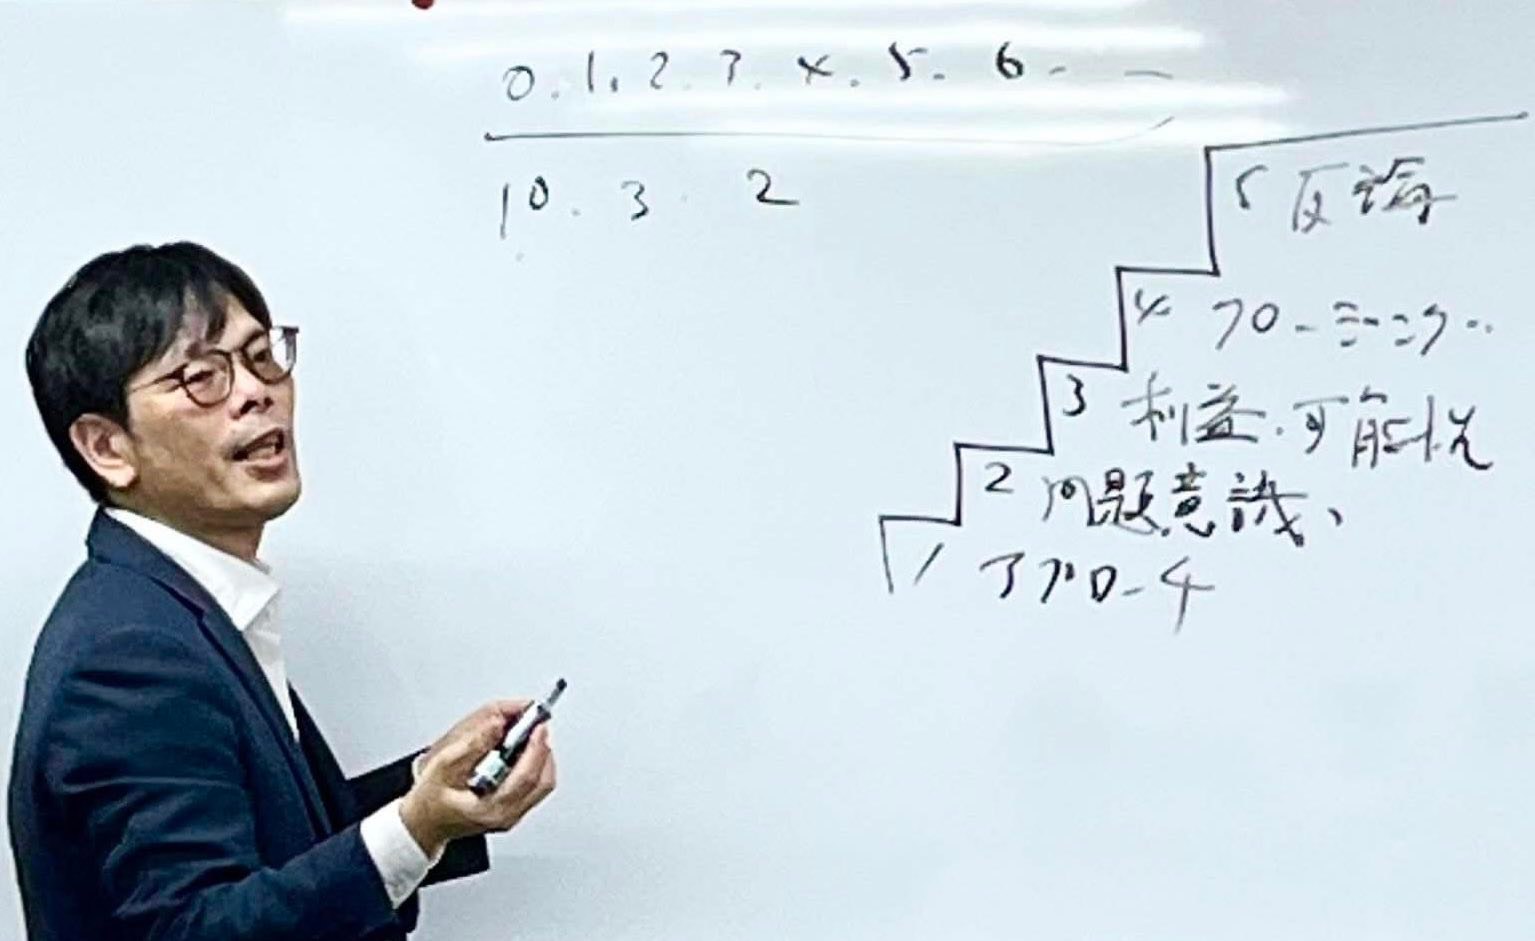 0.1.2.3.4.5.6- -
10.3.2
5 反論
4 クロージング..
3 利益.可能性
2 問題意識、
1 アプローチ